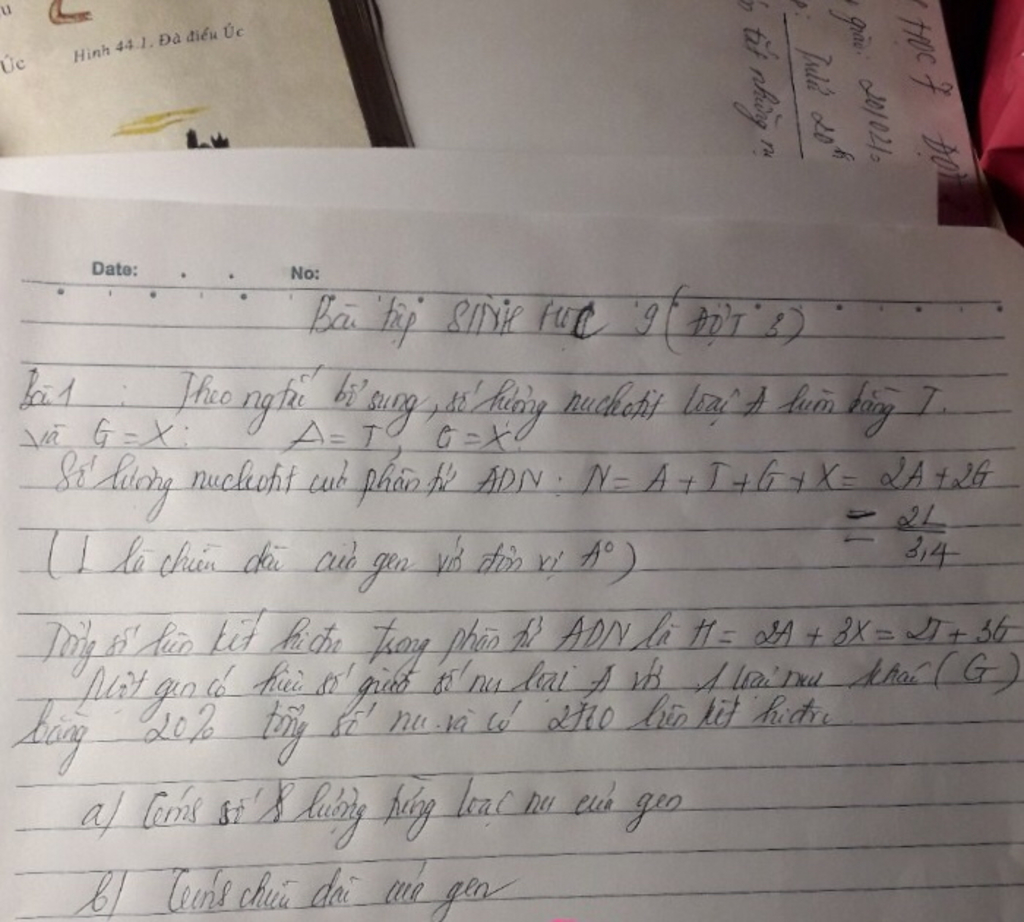 u
Úc
Hình 44.1. Đà điểu Úc
HỌC 7 ĐỢT
giao:
20h
tắt những
Date: . . No:
Bài tập SINH HỌC 9 (ĐỢT 3)
Bài 1 : Theo ngtắc bổ sung, số lượng nucleotit loại A luôn bằng T.
và G = X: A = T G = X
Số lượng nucleotit của phân tử ADN : N = A + T + G + X = 2A + 2G
= 2L
3,4
(L là chiều dài của gen với đơn vị A°)
Tổng số liên kết hiđro trong phân tử ADN là H = 2A + 3X = 2T + 3G
Một gen có hiệu số giữa số nu loại A với 1 loại nu khác (G)
bằng 20% tổng số nu và có liên kết hiđro
a) Tính số lượng từng loại nu của gen
b) Tính chiều dài của gen